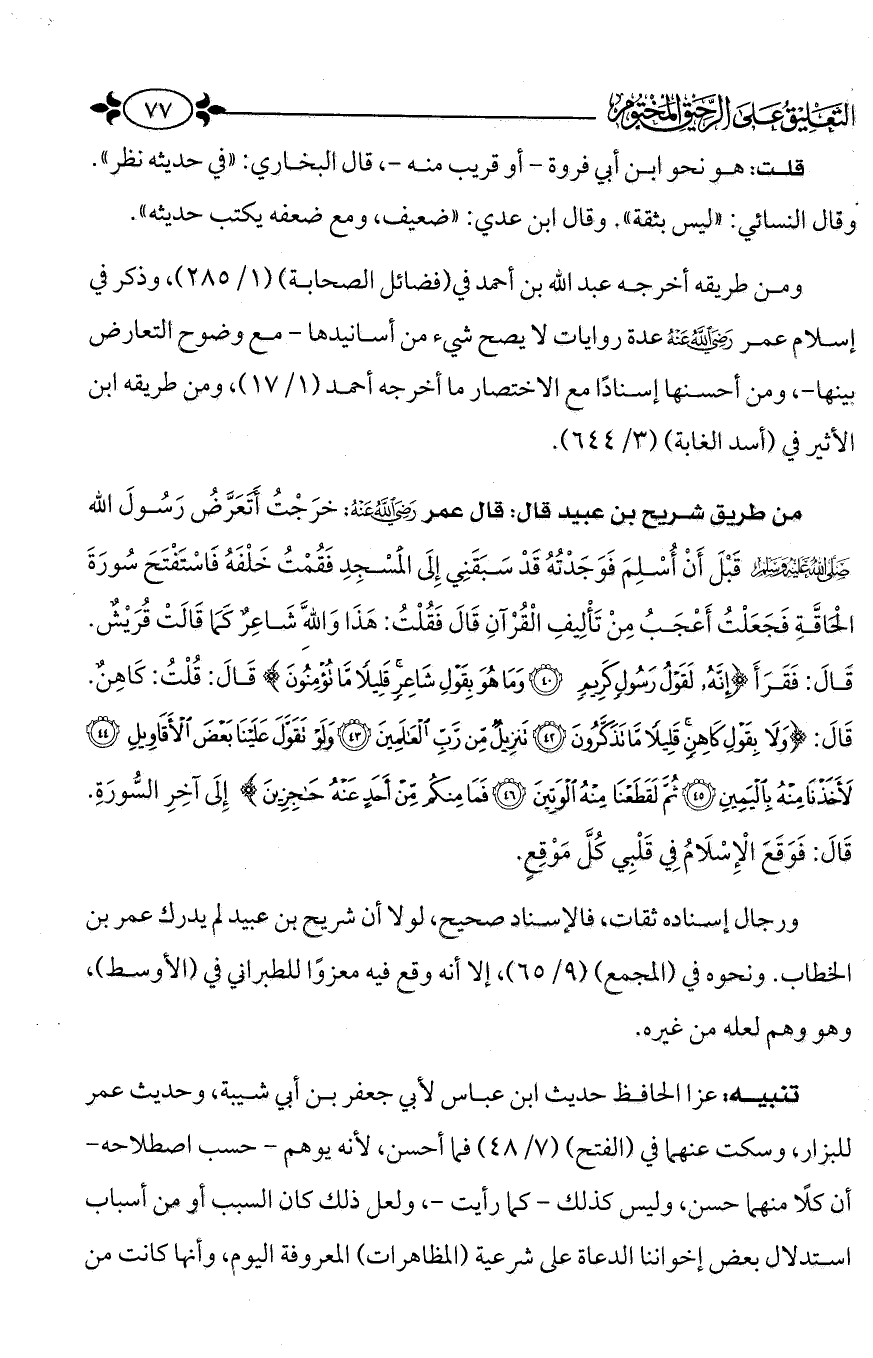 التعليق على الرحيق المختوم ٧٧
قلت: هو نحو ابن أبي فروة – أو قريب منه –، قال البخاري: «في حديثه نظر».
وقال النسائي: «ليس بثقة». وقال ابن عدي: «ضعيف، ومع ضعفه يكتب حديثه».
ومن طريقه أخرجه عبد الله بن أحمد في (فضائل الصحابة) (١/ ٢٨٥)، وذكر في
إسلام عمر رَضِيَ اللَّهُ عَنْهُ عدة روايات لا يصح شيء من أسانيدها – مع وضوح التعارض
بينها–، ومن أحسنها إسنادًا مع الاختصار ما أخرجه أحمد (١/ ١٧)، ومن طريقه ابن
الأثير في (أسد الغابة) (٣/ ٦٤٤).
من طريق شريح بن عبيد قال: قال عمر رَضِيَ اللَّهُ عَنْهُ: خرَجْتُ أَتَعَرَّضُ رَسُولَ الله
صَلَّى اللَّهُ عَلَيْهِ وَسَلَّمَ قَبْلَ أَنْ أُسْلِمَ فَوَجَدْتُهُ قَدْ سَبَقَنِي إِلَى الْمَسْجِدِ فَقُمْتُ خَلْفَهُ فَاسْتَفْتَحَ سُورَةَ
الْحَاقَّةِ فَجَعَلْتُ أَعْجَبُ مِنْ تَأْلِيفِ الْقُرْآنِ قَالَ فَقُلْتُ: هَذَا وَاللهِ شَاعِرٌ كَمَا قَالَتْ قُرَيْشٌ.
قَالَ: فَقَرَأَ ﴿إِنَّهُۥ لَقَوْلُ رَسُولٍ كَرِيمٍ ٤٠ وَمَا هُوَ بِقَوْلِ شَاعِرٍۚ قَلِيلًا مَّا تُؤْمِنُونَ﴾ قَالَ: قُلْتُ: كَاهِنٌ.
قَالَ: ﴿وَلَا بِقَوْلِ كَاهِنٍۚ قَلِيلًا مَّا تَذَكَّرُونَ ٤٢ تَنزِيلٌ مِّن رَّبِّ ٱلْعَٰلَمِينَ ٤٣ وَلَوْ تَقَوَّلَ عَلَيْنَا بَعْضَ ٱلْأَقَاوِيلِ ٤٤
لَأَخَذْنَا مِنْهُ بِٱلْيَمِينِ ٤٥ ثُمَّ لَقَطَعْنَا مِنْهُ ٱلْوَتِينَ ٤٦ فَمَا مِنكُم مِّنْ أَحَدٍ عَنْهُ حَٰجِزِينَ﴾ إِلَى آخِرِ السُّورَةِ.
قَالَ: فَوَقَعَ الْإِسْلَامُ فِي قَلْبِي كُلَّ مَوْقِعٍ.
ورجال إسناده ثقات، فالإسناد صحيح، لولا أن شريح بن عبيد لم يدرك عمر بن
الخطاب. ونحوه في (المجمع) (٩/ ٦٥)، إلا أنه وقع فيه معزوًا للطبراني في (الأوسط)،
وهو وهم لعله من غيره.
تنبيه: عزا الحافظ حديث ابن عباس لأبي جعفر بن أبي شيبة، وحديث عمر
للبزار، وسكت عنهما في (الفتح) (٧/ ٤٨) فما أحسن، لأنه يوهم – حسب اصطلاحه–
أن كلًا منهما حسن، وليس كذلك – كما رأيت –، ولعل ذلك كان السبب أو من أسباب
استدلال بعض إخواننا الدعاة على شرعية (المظاهرات) المعروفة اليوم، وأنها كانت من